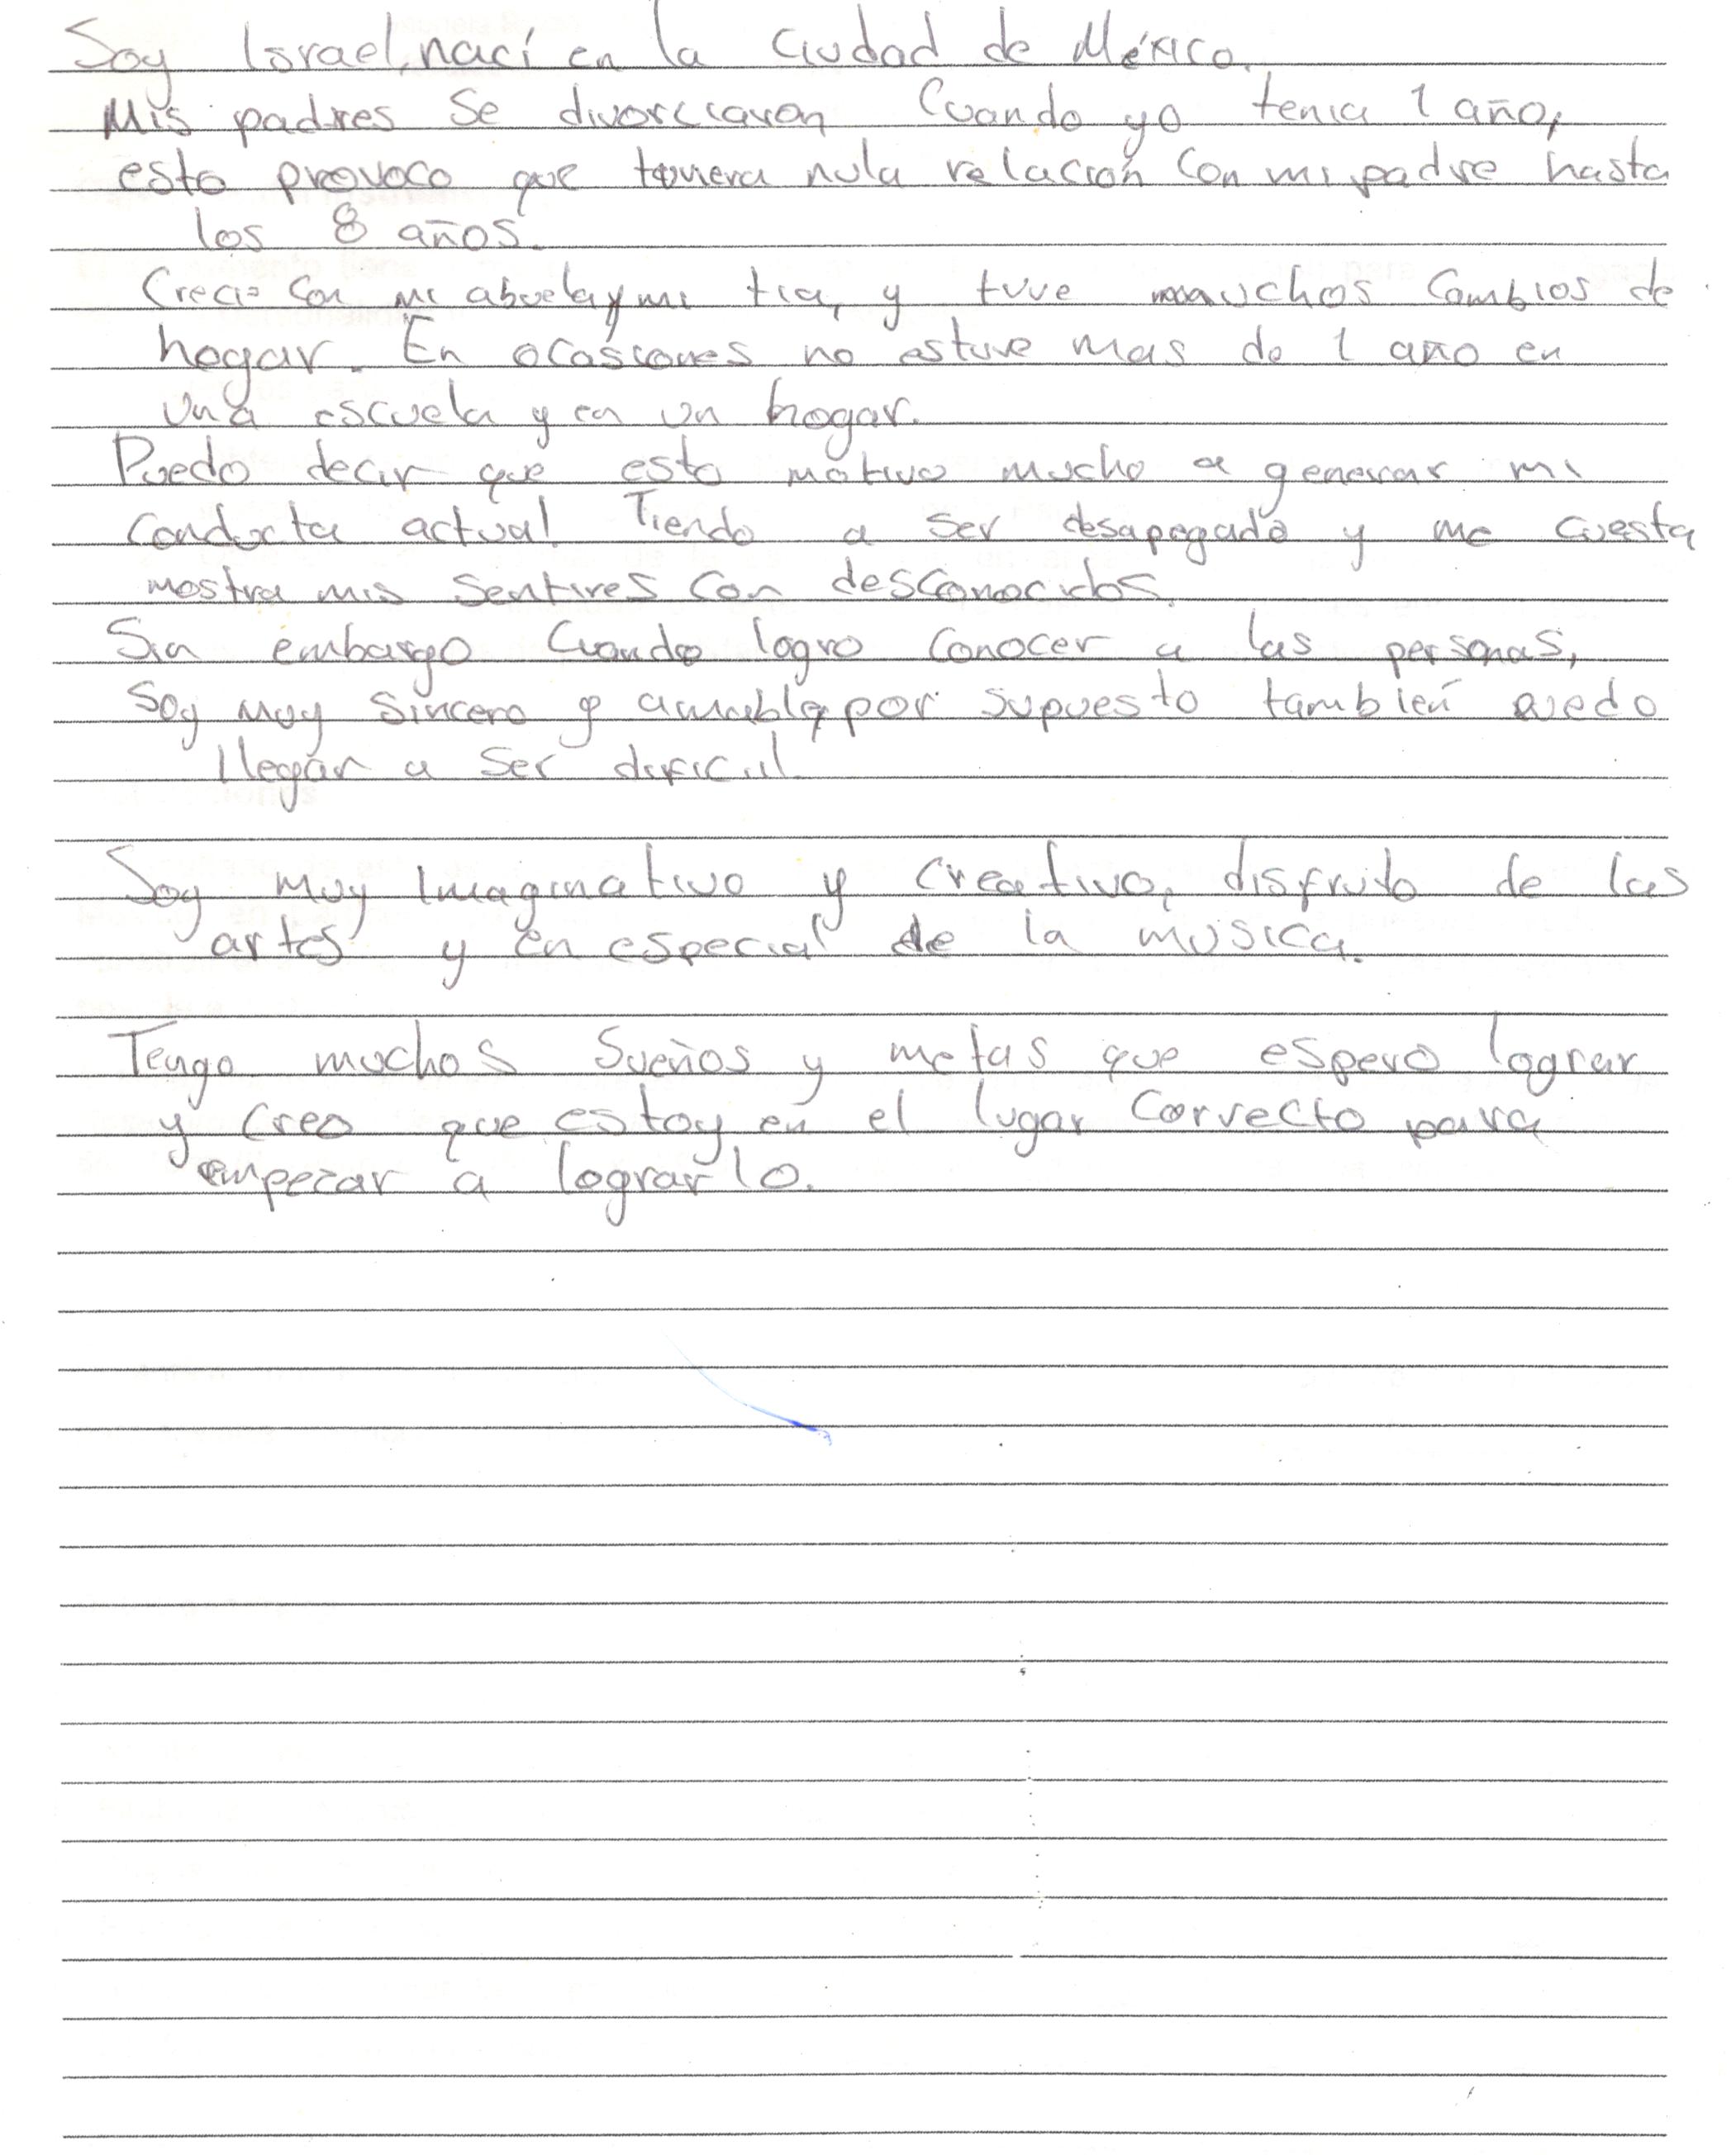 Soy Israel, nací en la Ciudad de México.
Mis padres se divorciaron cuando yo tenia 1 año,
esto provoco que tuviera nula relación con mi padre hasta
los 8 años.
Creci con mi abuela y mi tia, y tuve muchos cambios de
hogar. En ocasiones no estuve mas de 1 año en
una escuela y en un hogar.
Puedo decir que esto motivo mucho a generar mi
conducta actual. Tiendo a ser desapegado y me cuesta
mostra mis sentires con desconocidos.
Sin embargo cuando logro conocer a las personas,
soy muy sincero y amable, por supuesto también puedo
llegar a ser dificil.
Soy muy imaginativo y creativo, disfruto de las
artes y en especial de la musica.
Tengo muchos sueños y metas que espero lograr
y creo que estoy en el lugar correcto para
empezar a lograrlo.